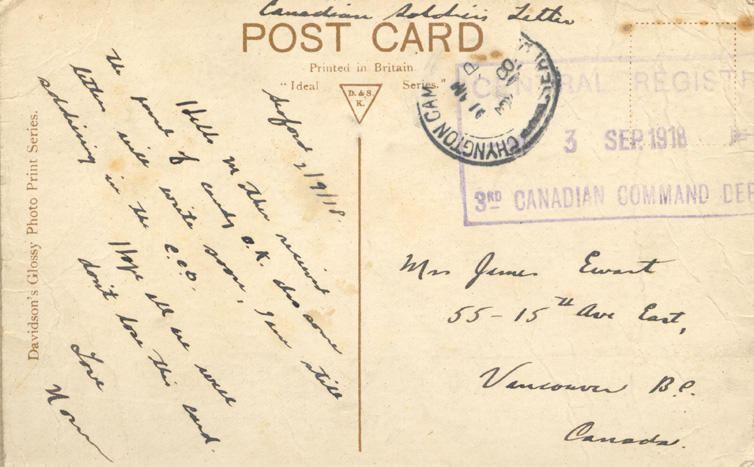 Canadian Soldiers Letter
POST CARD
Printed in Britain
"Ideal Series."
D. & S.
K.
Davidson's Glossy Photo Print Series.
Seaford 2/9/18.
Hello m then received
the parcel of candy O.K. also some
letters will write soon, I am still
soldiering in the C.C.D.
Hope all are well
don't lose this card.
Love
Norm
CHYNGTON CAMP
CENTRAL REGISTR
3 SEP 1918
3RD CANADIAN COMMAND DEP
Mrs James Ewart
55-15th Ave East,
Vancouver B.C.
Canada.